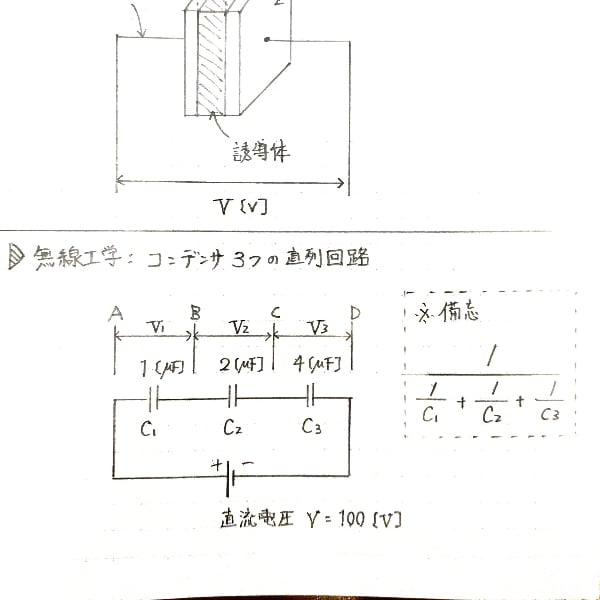 誘導体
V [V]
無線工学: コンデンサ3つの直列回路
A B C D
V1 V2 V3
1 [μF] 2 [μF] 4 [μF]
C1 C2 C3
+ −
直流電圧 V = 100 [V]
※ 備忘
1
1/C1 + 1/C2 + 1/C3